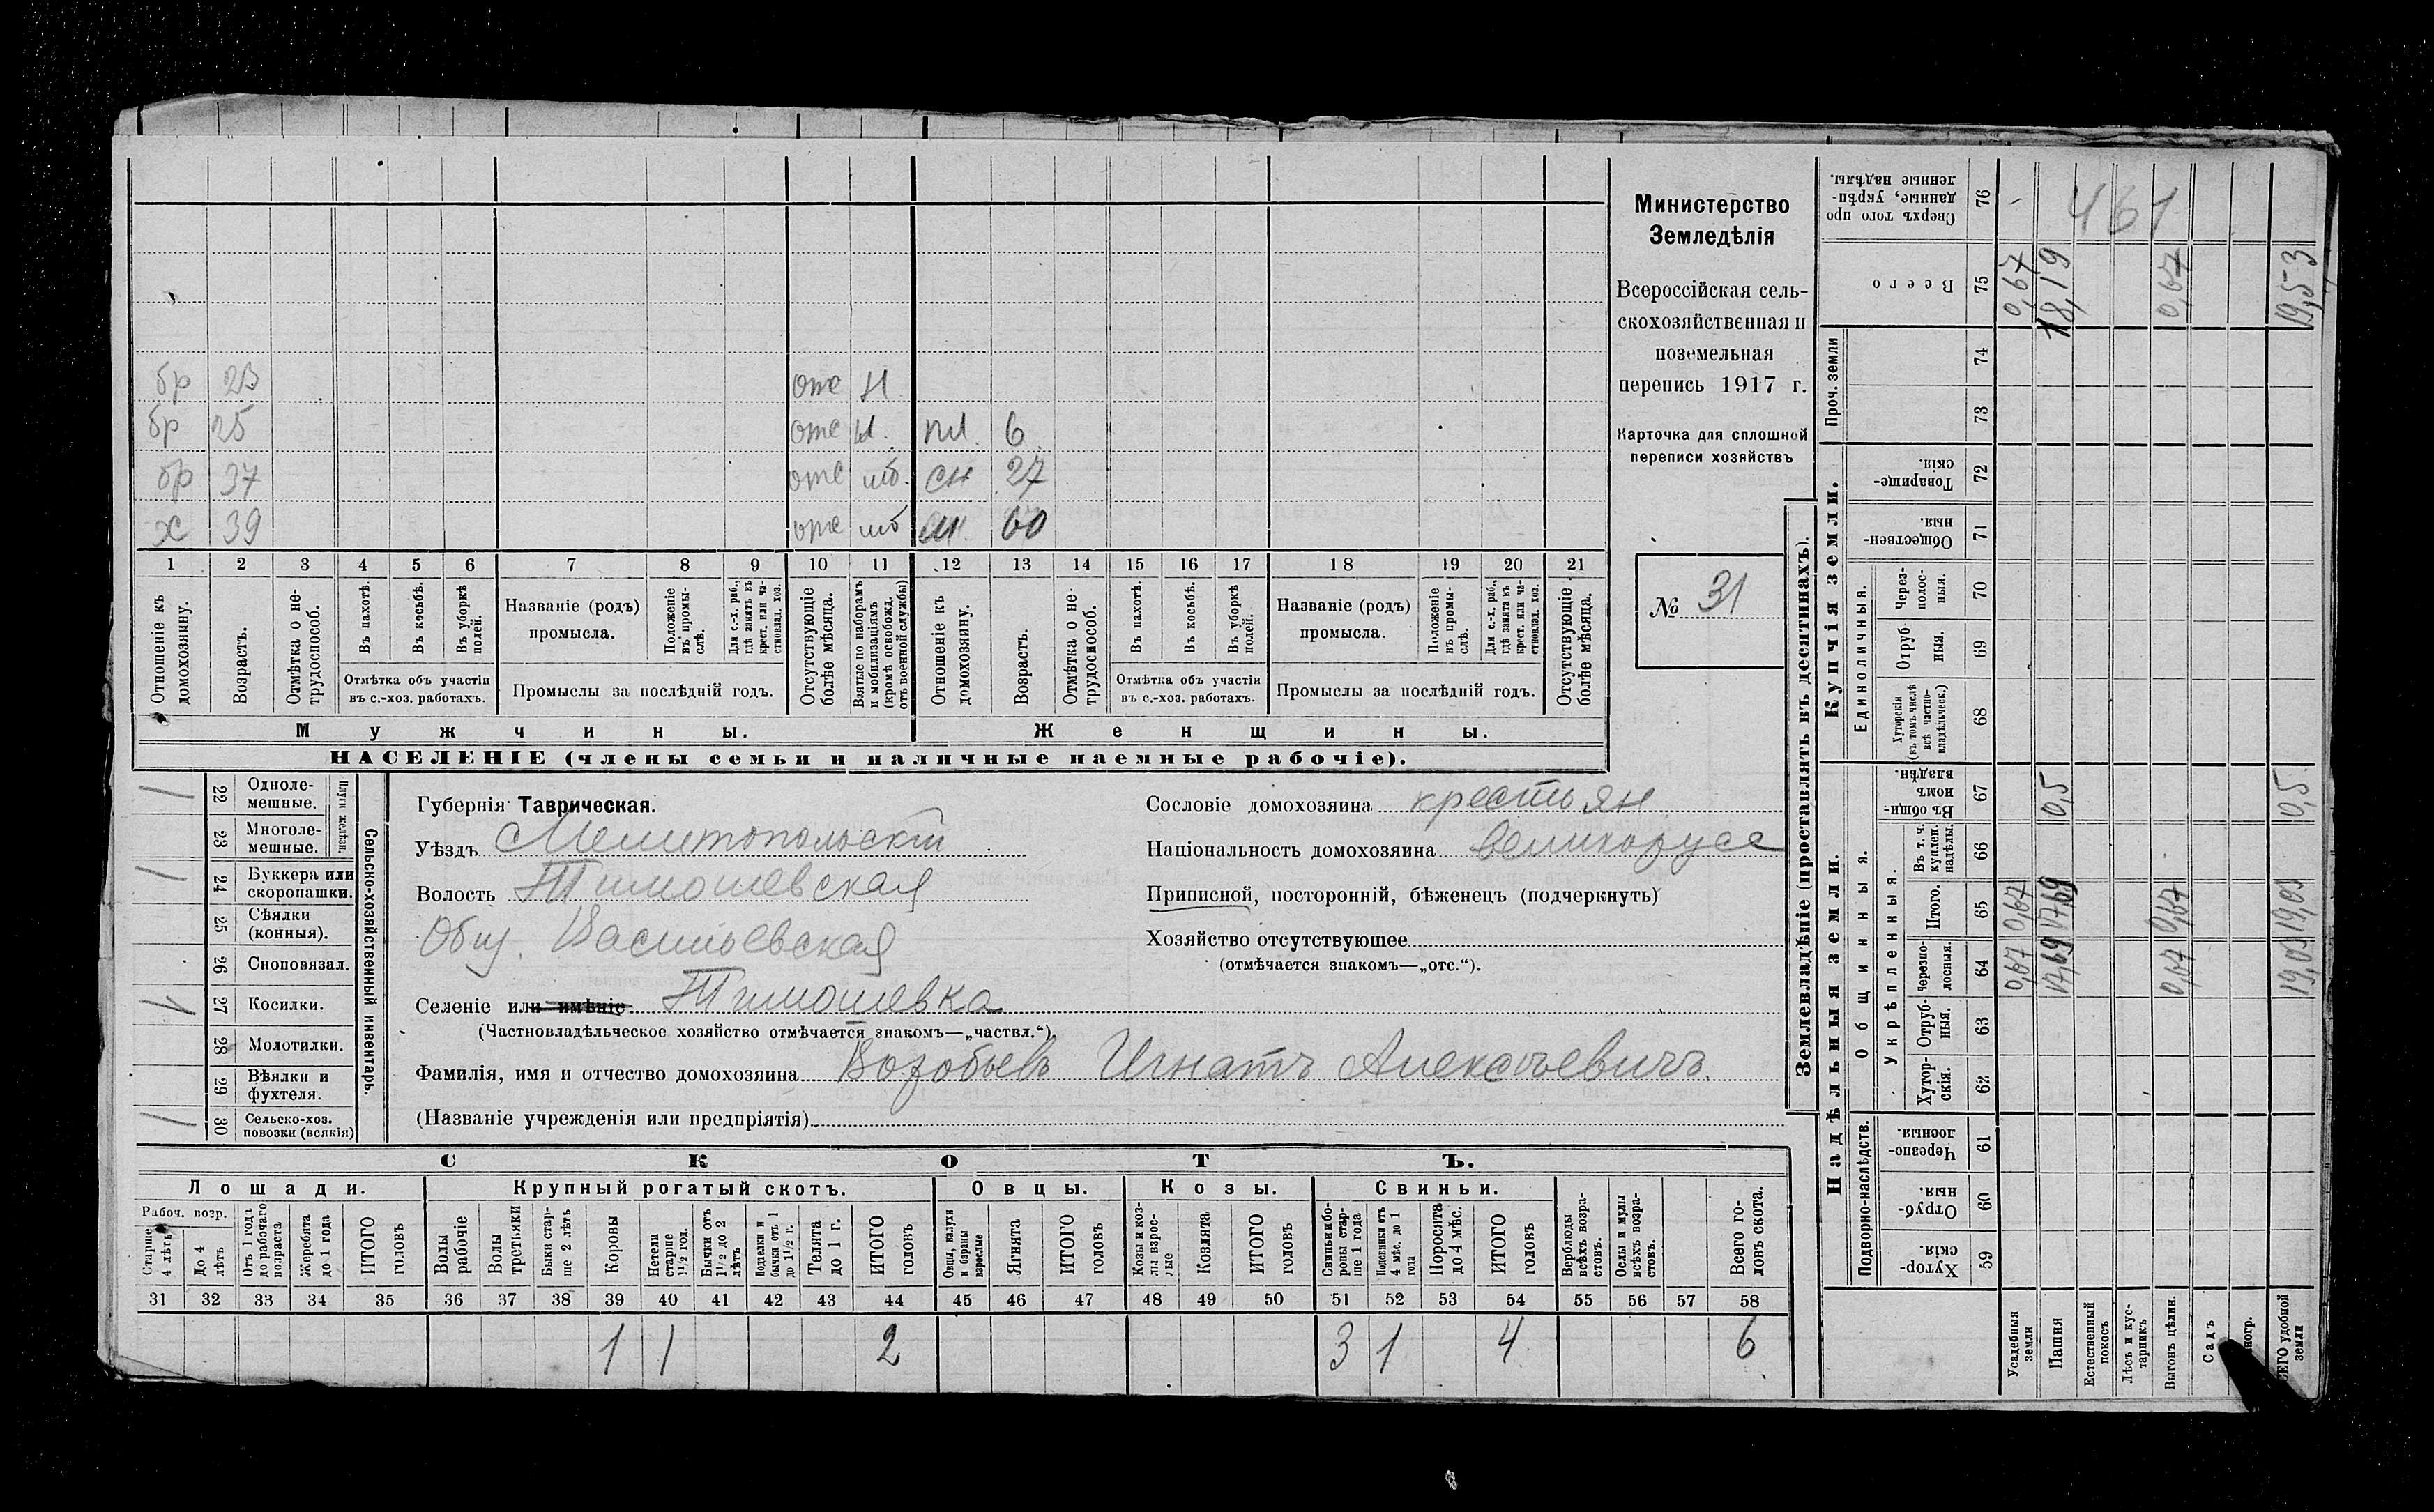 бр 23 отс н
бр 25 отс н. пл. 6
бр 37 отс мб. сн 27
х 39 отс мб 60
1 2 3 4 5 6 7 8 9 10 11 12 13 14 15 16 17 18 19 20 21
Отношеніе къ домохозяину.
Возрастъ.
Отмѣтка о не-трудоспособ.
Въ пахотѣ.
Въ косьбѣ.
Въ уборкѣ полей.
Отмѣтка объ участіи
въ с.-хоз. работахъ.
Названіе (родъ)
промысла.
Положеніе въ промы-слѣ.
Для с.-х. раб., гдѣ занятъ въ крест. или ча-стновлад. хоз.
Промыслы за послѣдній годъ.
Отсутствующіе болѣе мѣсяца.
Взятые по наборамъ и мобилизаціямъ (кромѣ освобожд. отъ военной службы)
Отношеніе къ домохозяину.
Возрастъ.
Отмѣтка о не-трудоспособ.
Въ пахотѣ.
Въ косьбѣ.
Въ уборкѣ полей.
Отмѣтка объ участіи
въ с.-хоз. работахъ.
Названіе (родъ)
промысла.
Положеніе въ промы-слѣ.
Для с.-х. раб., гдѣ занята въ крест. или ча-стновлад. хоз.
Промыслы за послѣдній годъ.
Отсутствующіе болѣе мѣсяца.
Мужчины.
Женщины.
НАСЕЛЕНІЕ (члены семьи и наличные наемные рабочіе).
Министерство
Земледѣлія
Всероссійская сель-
скохозяйственная и
поземельная
перепись 1917 г.
Карточка для сплошной
переписи хозяйствъ
№ 31
Сельско-хозяйственный инвентарь.
Плуги желѣзн.
1 22 Одноле-мешные.
23 Многоле-мешные.
1 24 Буккера или скоропашки.
25 Сѣялки (конныя).
26 Сноповязал.
1 27 Косилки.
28 Молотилки.
29 Вѣялки и фухтеля.
1 30 Сельско-хоз. повозки (всякія)
Губернія Таврическая.
Уѣздъ Мелитопольскій
Волость Тимошевская
Общ. Васильевская
Селеніе или имѣніе Тимошевка
(Частновладѣльческое хозяйство отмѣчается знакомъ—„частвл.“).
Фамилія, имя и отчество домохозяина Воробьевъ Игнатъ Алексѣевичъ.
(Названіе учрежденія или предпріятія)
Сословіе домохозяина крестьян
Національность домохозяина великорусс
Приписной, посторонній, бѣженецъ (подчеркнуть)
Хозяйство отсутствующее
(отмѣчается знакомъ—„отс.“).
СКОТЪ.
Лошади. Крупный рогатый скотъ. Овцы. Козы. Свиньи.
Рабоч. возр.
Старше 4 лѣтъ
До 4 лѣтъ
Отъ 1 года до рабочаго возраста
Жеребята до 1 года
ИТОГО головъ
Волы рабочіе
Волы третьяки
Быки стар-ше 2 лѣтъ
Коровы
Нетели старше 1½ год.
Бычки отъ 1½ до 2 лѣтъ
Подтелки и бычки отъ 1 до 1½ г.
Телята до 1 г.
ИТОГО головъ
Овцы, валухи и бараны взрослые
Ягнята
ИТОГО головъ
Козы и коз-лы взрос-лые
Козлята
ИТОГО головъ
Свиньи и бо-ровы стар-ше 1 года
Подсвинки отъ 4 мѣс. до 1 года
Поросята до 4 мѣс.
ИТОГО головъ
Верблюды всѣхъ возра-стовъ.
Ослы и мулы всѣхъ возра-стовъ.
Всего го-ловъ скота.
31 32 33 34 35 36 37 38 39 40 41 42 43 44 45 46 47 48 49 50 51 52 53 54 55 56 57 58
1 1 2 3 1 4 6
Землевладѣніе (проставлять въ десятинахъ).
Надѣльныя земли.
Купчія земли.
Проч. земли
Подворно-наслѣдств.
Общинныя.
Укрѣпленныя.
Единоличныя.
Хутор-скія. 59
Отруб-ныя. 60
Черезпо-лосныя. 61
Хутор-скія. 62
Отруб-ныя. 63
Черезпо-лосныя. 64 0,67 17,69 0,67 19,03
Итого. 65 0,67 17,69 0,67 19,03
Въ т. ч. куплен. надѣлы. 66
Въ общи-номъ владѣн. 67 0,5 0,5
Хуторскія (въ томъ числѣ всѣ частно-владѣльческ.) 68
Отруб-ныя. 69
Через-полос-ныя. 70
Обществен-ныя. 71
Товарище-скія. 72
73
74
Всего 75 0,67 18,19 0,67 19,53
Сверхъ того про-данные, укрѣп-ленные надѣлы. 76
461
Усадебныя земли
Пашня
Естественный покосъ
Лѣсъ и кус-тарникъ
Выгонъ цѣлин.
Садъ
удобной земли